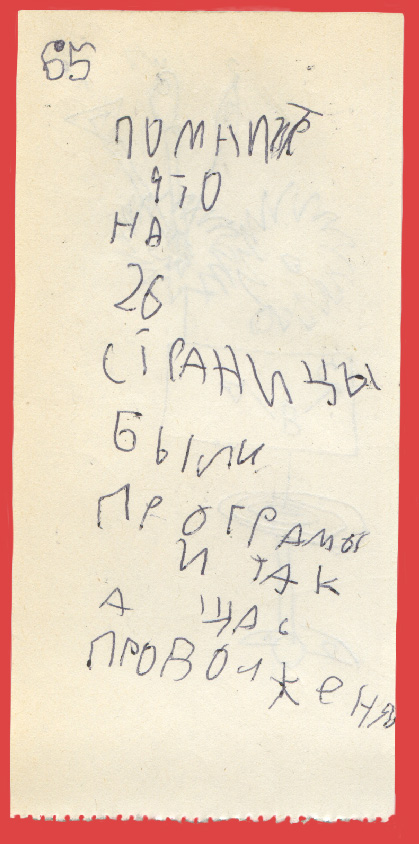 65
ПОМНИТЕ
ЧТО
НА
26
СТРАНИЦЫ
БЫЛИ
ПРОГРАМЫ
И ТАК
А ЩАС
ПРОВОЛЖЕНЯ